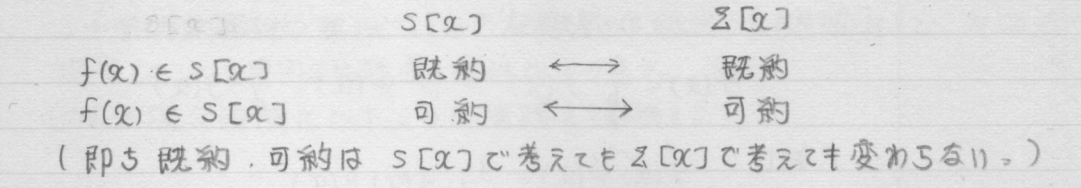 S[x] Σ[x]
f(x) ∈ S[x] 既約 ⟷ 既約
f(x) ∈ S[x] 可約 ⟷ 可約
(即ち既約.可約は S[x]で考えてもΣ[x]で考えても変わらない。)